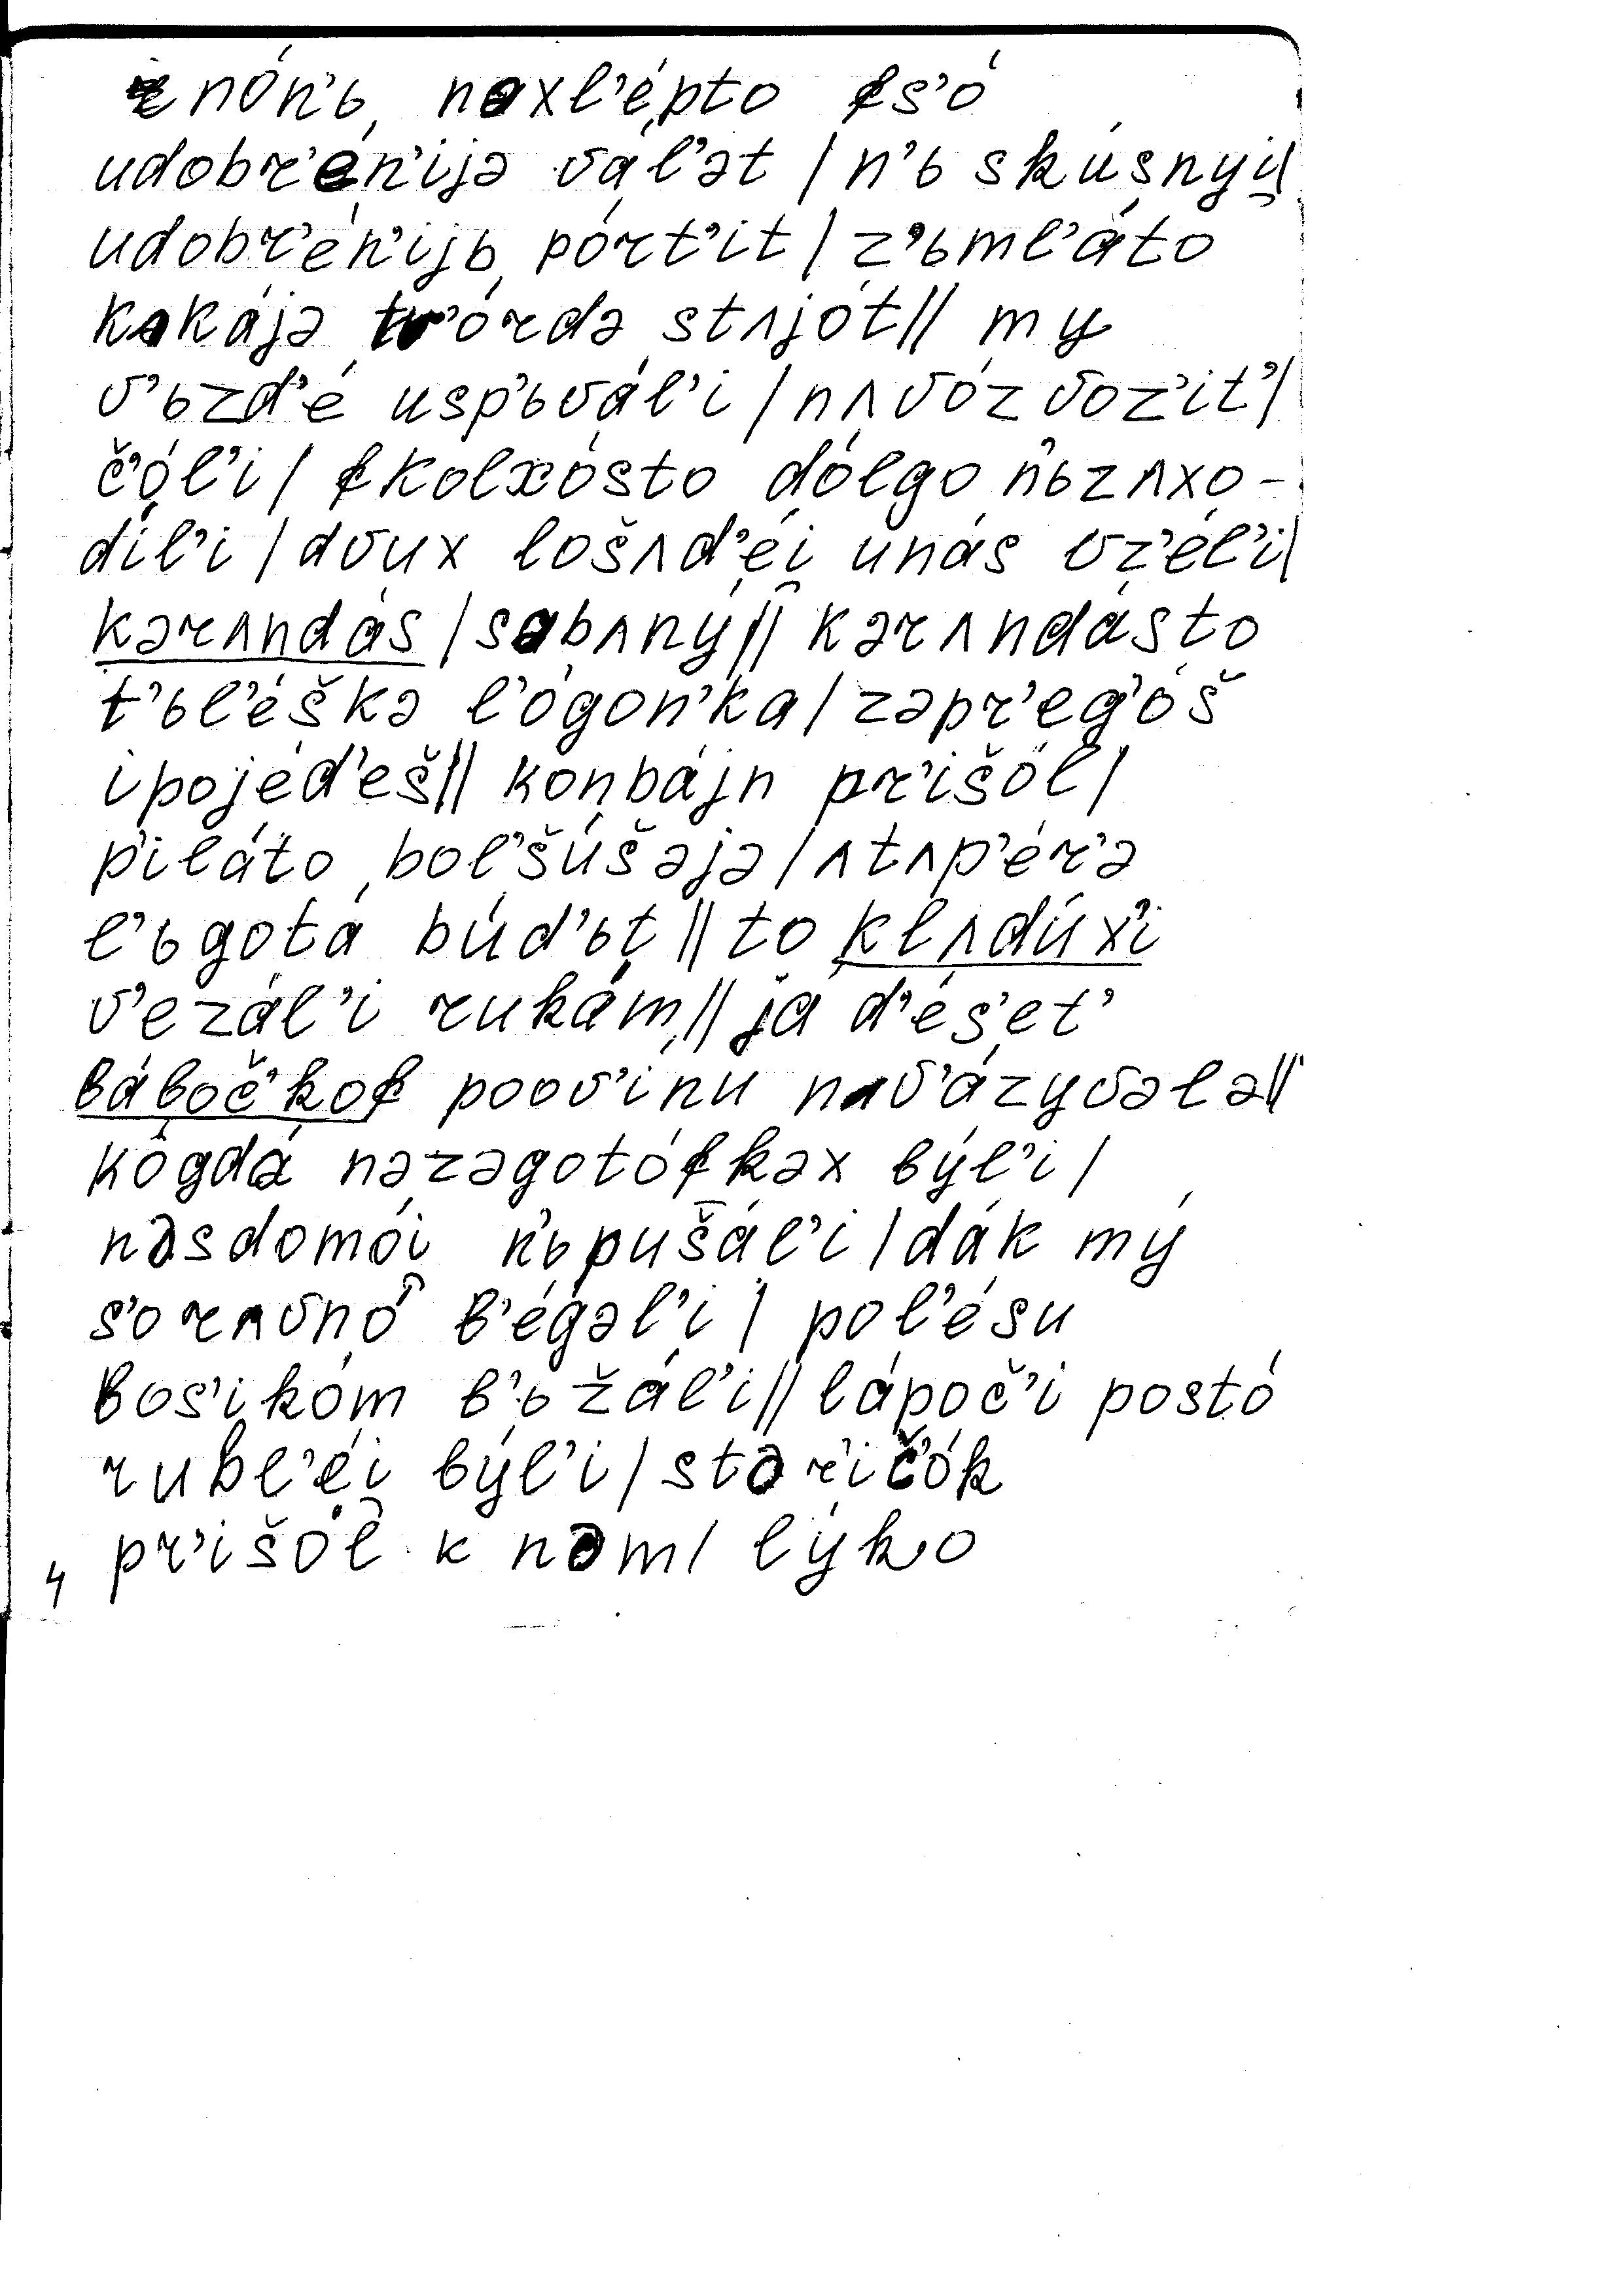 nón'ь naxl'épto fs'ó
udobr'én'ijə vál'ət / n'ь skúsnyi̯ /
udobr'én'ijь pórt'it / z'ьml'áto
kakájə tv'órdə stʌjót // my
v'ьzd'é usp'ьvál'i / nʌvóz voz'it' /
č'ól'i / fkolxósto dólgo n'ьzʌxo-
d'íl'i / dvux lošʌd'éi̯ unás vz'él'i /
kərʌndás / sabʌný // kərʌndásto
t'ьl'éškə l'ógon'ka / zəpr'eg'óš
ipojéd'eš // konbájn pr'išól /
p'iláto bol'šúšəjə / ʌtʌp'ér'ə
l'ьgotá búd'ьt // to klʌdúx'i
v'ezál'i rukám // já d'és'et'
báboč'kof poov'ínu nav'ázyvələ //
kogdá nəzəgotófkəx býl'i /
nəsdomói̯ n'ьpušš̄ál'i / dák mý
s'orʌvnó b'égəl'i / pol'ésu
bos'ikóm b'ьžál'i // lápoč'i postó
rubl'éi̯ býl'i / stər'ič'ók
pr'išól k nəm / lýko
4